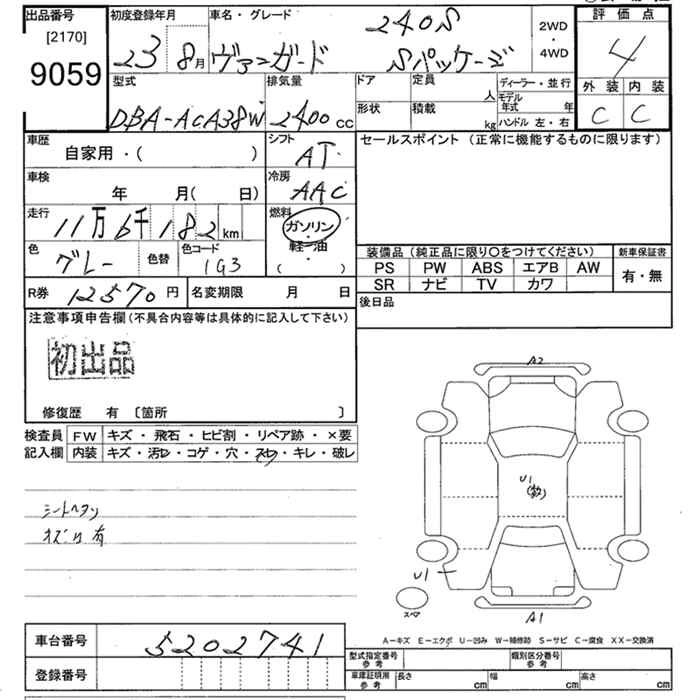 出品番号
[2170]
9059
初度登録年月
23 8月
車名・グレード
240S
ヴァンガード Sパッケージ
2WD
・
4WD
評価点
4
外装 内装
C C
型式
DBA-ACA38W
排気量
2400cc
ドア
定員
人
形状
積載
kg
ディーラー・並行
モデル年式 年
ハンドル 左・右
車歴
自家用・( )
シフト
AT
車検
年 月( 日)
冷房
AAC
走行
11万6千182km
燃料
ガソリン
・
軽油
( ・ )
色
グレー
色替
色コード
1G3
R券 12570円
名変期限 月 日
セールスポイント (正常に機能するものに限ります)
装備品(純正品に限り〇をつけてください)
新車保証書
PS PW ABS エアB AW
SR ナビ TV カワ
有・無
後日品
注意事項申告欄(不具合内容等は具体的に記入して下さい)
初出品
修復歴 有 〔箇所 〕
検査員記入欄
FW キズ・飛石・ヒビ割・リペア跡・×要
内装 キズ・汚レ・コゲ・穴・スレ・キレ・破レ
シートヘタリ
キズ 有
A2
U1
(数)
U1
スペア
A1
A-キズ E-エクボ U-凹み W-補修跡 S-サビ C-腐食 XX-交換済
車台番号 5202741
登録番号
型式指定番号
参考
類別区分番号
参考
車庫証明用
参考
長さ cm
幅 cm
高さ cm